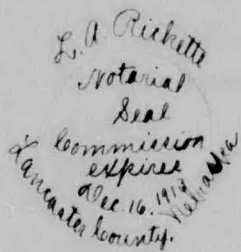 L. A. Ricketts
Notarial
Seal
Commission
expires
Dec. 16. 1913
Lancaster County.
Nebraska